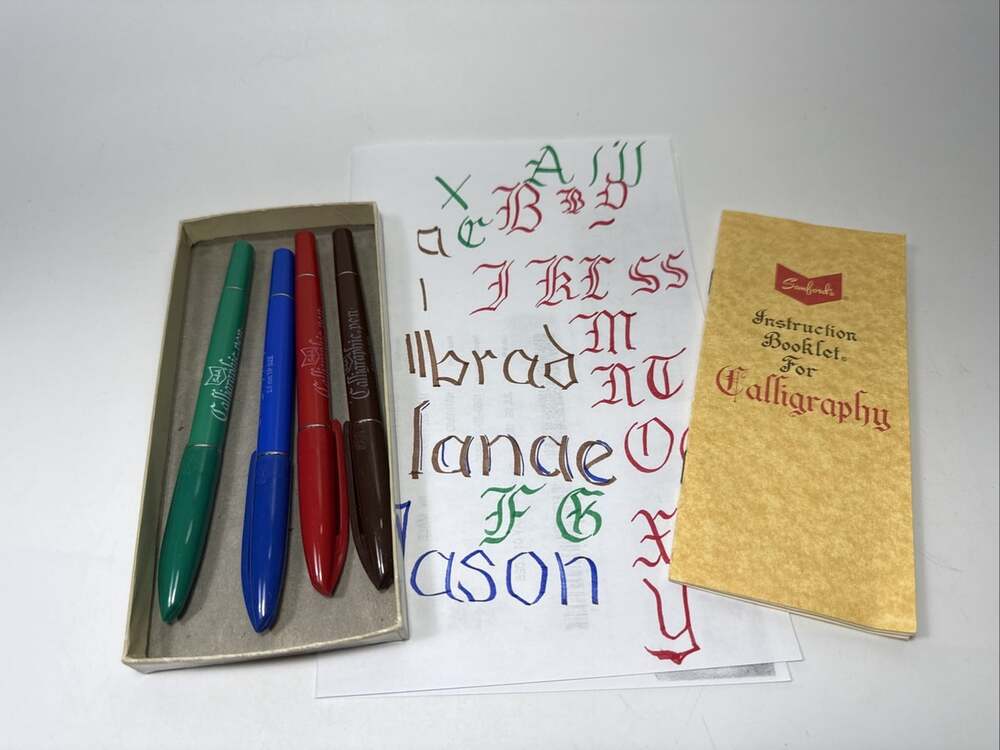 A i j j
X B B D
a C
I J K L S S
brad M
N T
lanae O
F G
X
Jason
y
Calligraphic pen
Calligraphic pen
Calligraphic pen
Sanford's
Instruction
Booklet
For
Calligraphy